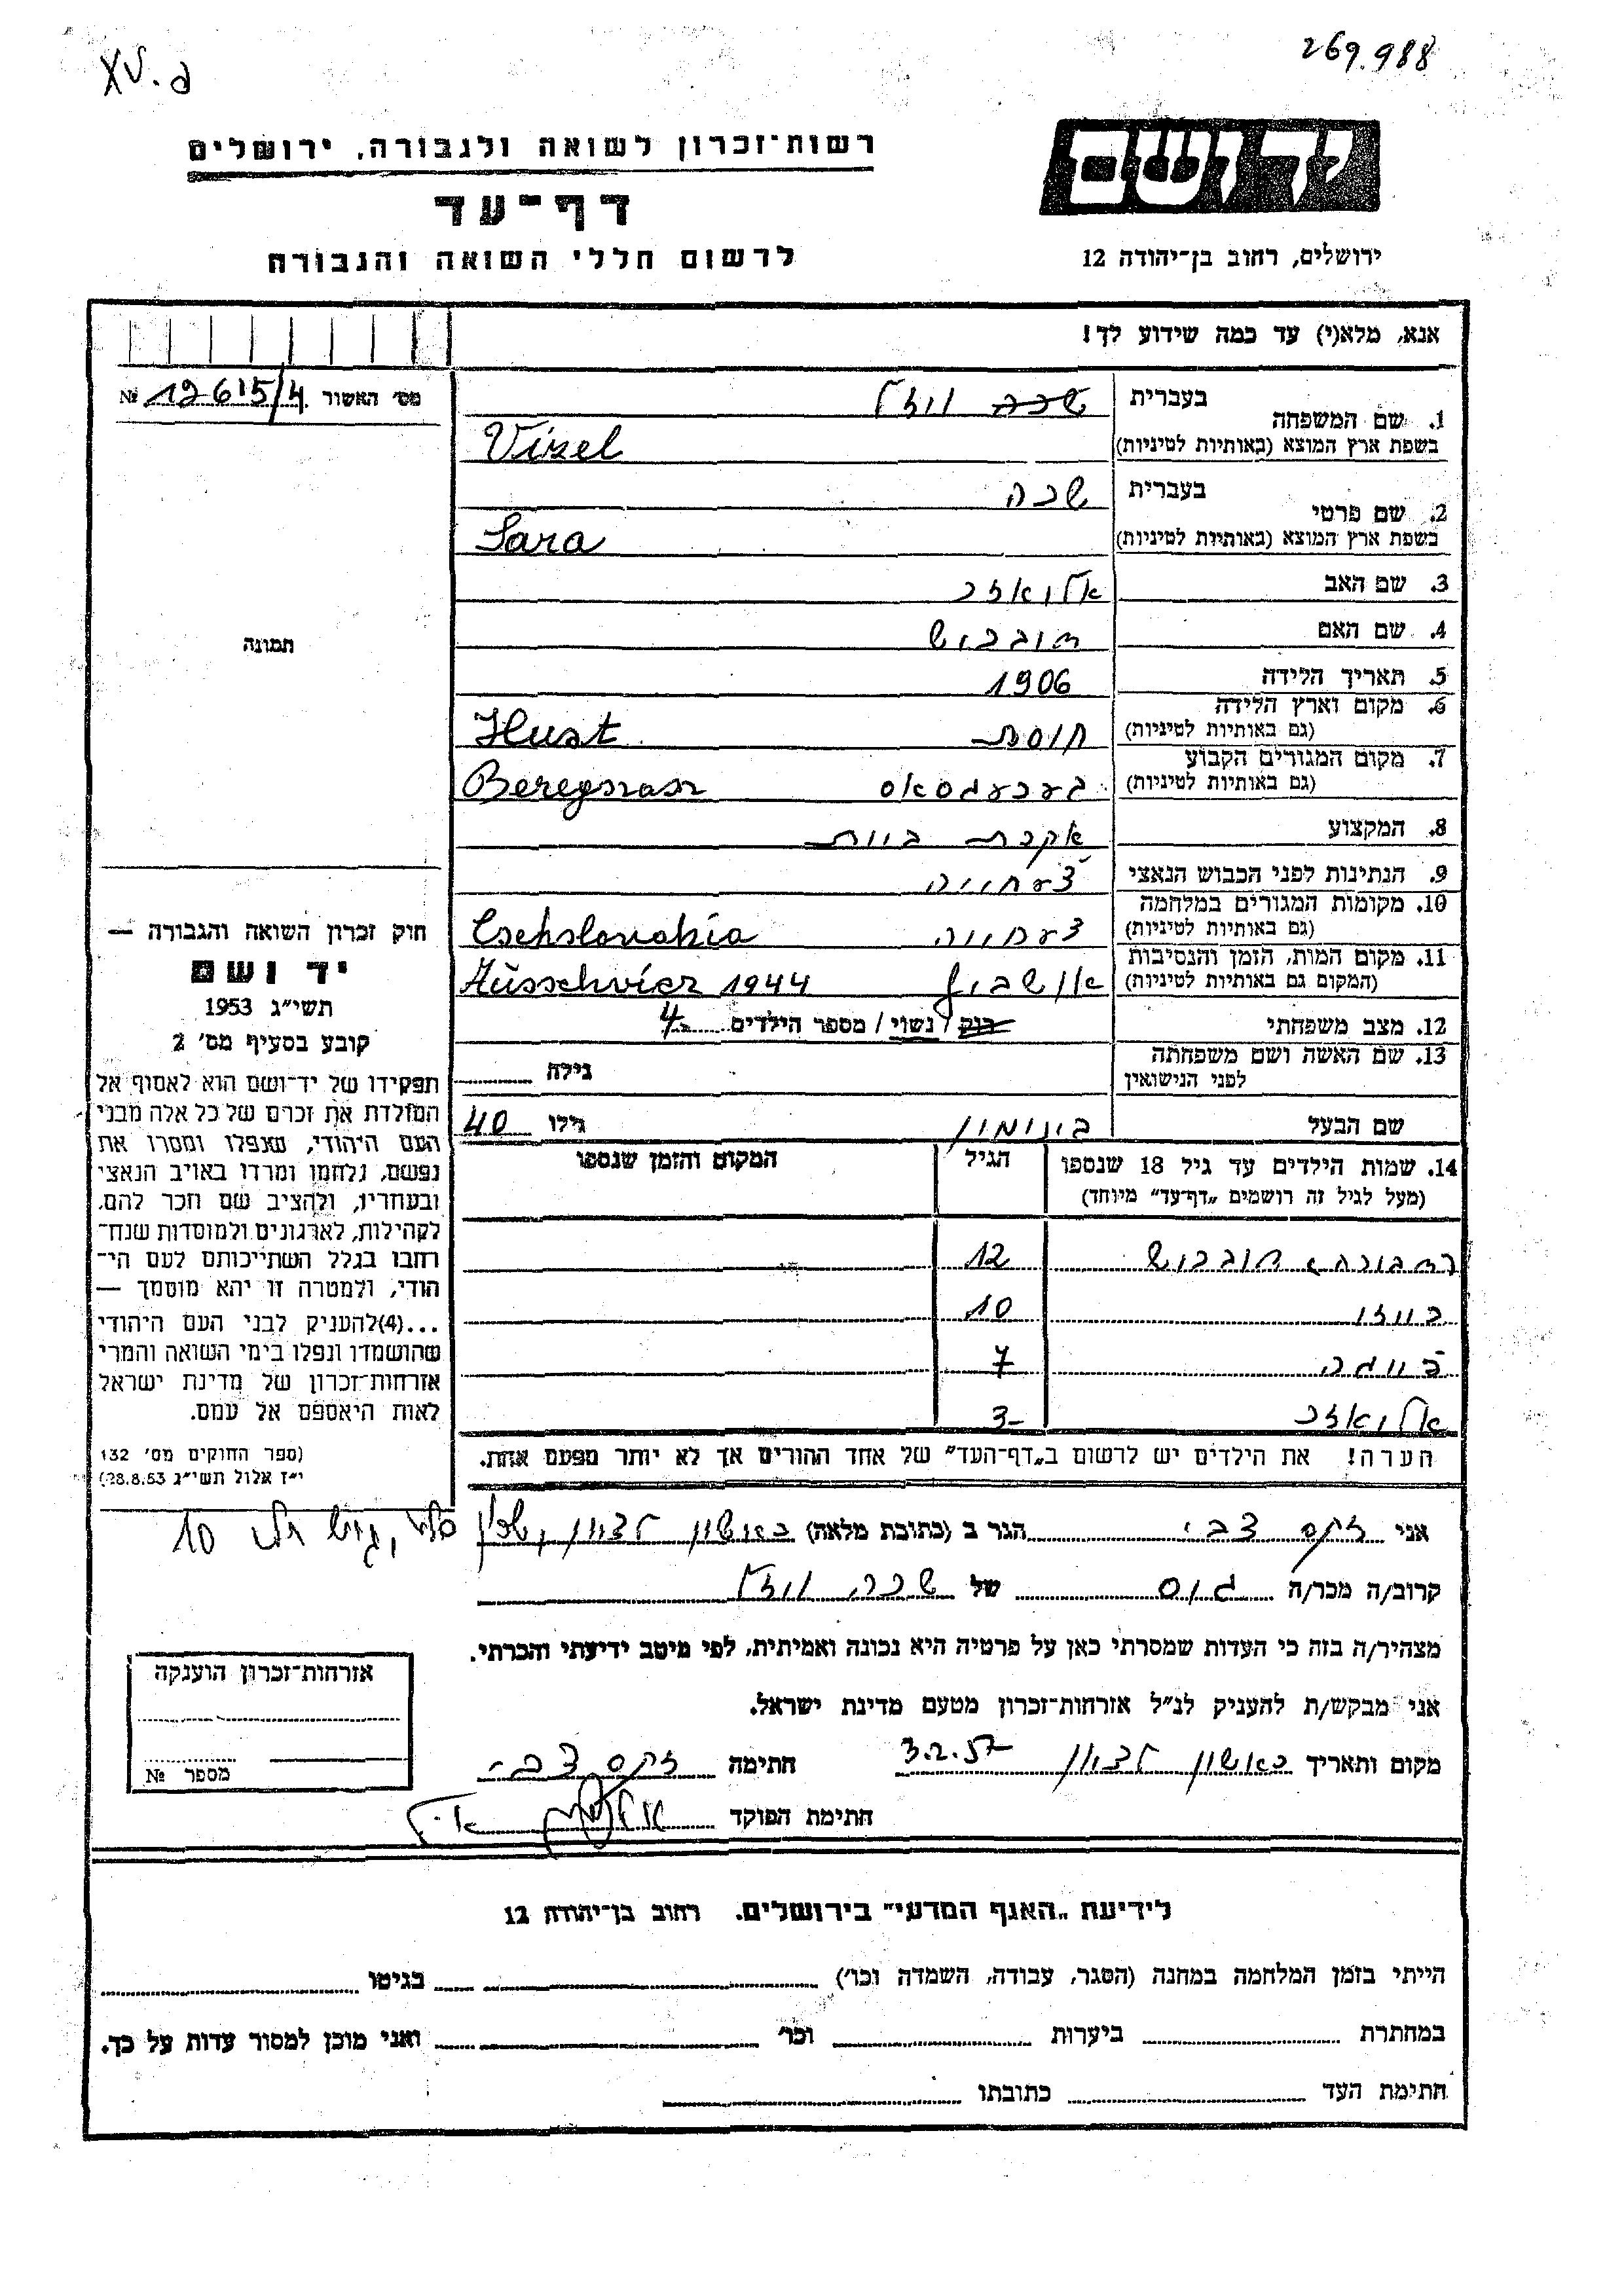 269.988
XV. ג
ידושם
רשות־זכרון לשואה ולגבורה, ירושלים
דף־עד
ירושלים, רחוב בן־יהודה 12
לרשום חללי השואה והגבורה
אנא, מלא(י) עד כמה שידוע לך!
מס׳ האשור 12615/4 №
1. שם המשפחה
בעברית שרה וזל
בשפת ארץ המוצא (באותיות לטיניות) Vizel
2. שם פרטי
בעברית שרה
בשפת ארץ המוצא (באותיות לטיניות) Sara
3. שם האב אליאזר
4. שם האם
תמונה
5. תאריך הלידה 1906
6. מקום וארץ הלידה
(גם באותיות לטיניות) חוסת Hust
7. מקום המגורים הקבוע
(גם באותיות לטיניות) בערעגסאס Beregszasz
8. המקצוע עקרת בית
9. הנתינות לפני הכבוש הנאצי צ׳עחייה
10. מקומות המגורים במלחמה
(גם באותיות לטיניות) צעחייה Csehslovakia
11. מקום המות, הזמן והנסיבות
(המקום גם באותיות לטיניות) אושביץ Aüsschvicz 1944
12. מצב משפחתי רוק / נשוי / מספר הילדים 4
13. שם האשה ושם משפחתה
לפני הנישואין
גילה
שם הבעל בנימין גילו 40
14. שמות הילדים עד גיל 18 שנספו
(מעל לגיל זה רושמים „דף־עד״ מיוחד)
הגיל
המקום והזמן שנספו
12
רייזי 10
פייגה 7
אליאזר 3
הערה! את הילדים יש לרשום ב„דף־העד״ של אחד ההורים אך לא יותר מפעם אחת.
חוק זכרון השואה והגבורה —
יד ושם
תשי״ג 1953
קובע בסעיף מס׳ 2
תפקידו של יד־ושם הוא לאסוף אל
המולדת את זכרם של כל אלה מבני
העם היהודי, שנפלו ומסרו את
נפשם, נלחמו ומרדו באויב הנאצי
ובעוזריו, ולהציב שם וזכר להם,
לקהילות, לארגונים ולמוסדות שנח־
רבו בגלל השתייכותם לעם הי־
הודי, ולמטרה זו יהא מוסמך —
...(4)להעניק לבני העם היהודי
שהושמדו ונפלו בימי השואה והמרי
אזרחות־זכרון של מדינת ישראל
לאות היאספם אל עמם.
(ספר החוקים מס׳ 132
י״ז אלול תשי״ג 28.8.53)
אני זקס צבי הגר ב (כתובת מלאה) ראשון לציון, שכון 10
קרוב/ה מכר/ה גיס של שרה וזל
מצהיר/ה בזה כי העדות שמסרתי כאן על פרטיה היא נכונה ואמיתית, לפי מיטב ידיעתי והכרתי.
אני מבקש/ת להעניק לנ״ל אזרחות־זכרון מטעם מדינת ישראל.
מקום ותאריך ראשון לציון 3.2.57 חתימה זקס צבי
חתימת הפוקד
אזרחות־זכרון הוענקה
מספר №
לידיעת „האגף המדעי״ בירושלים. רחוב בן־יהודה 12
הייתי בזמן המלחמה במחנה (הסגר, עבודה, השמדה וכו׳) בגיטו
במחתרת ביערות וכו׳ ואני מוכן למסור עדות על כך.
חתימת העד כתובתו